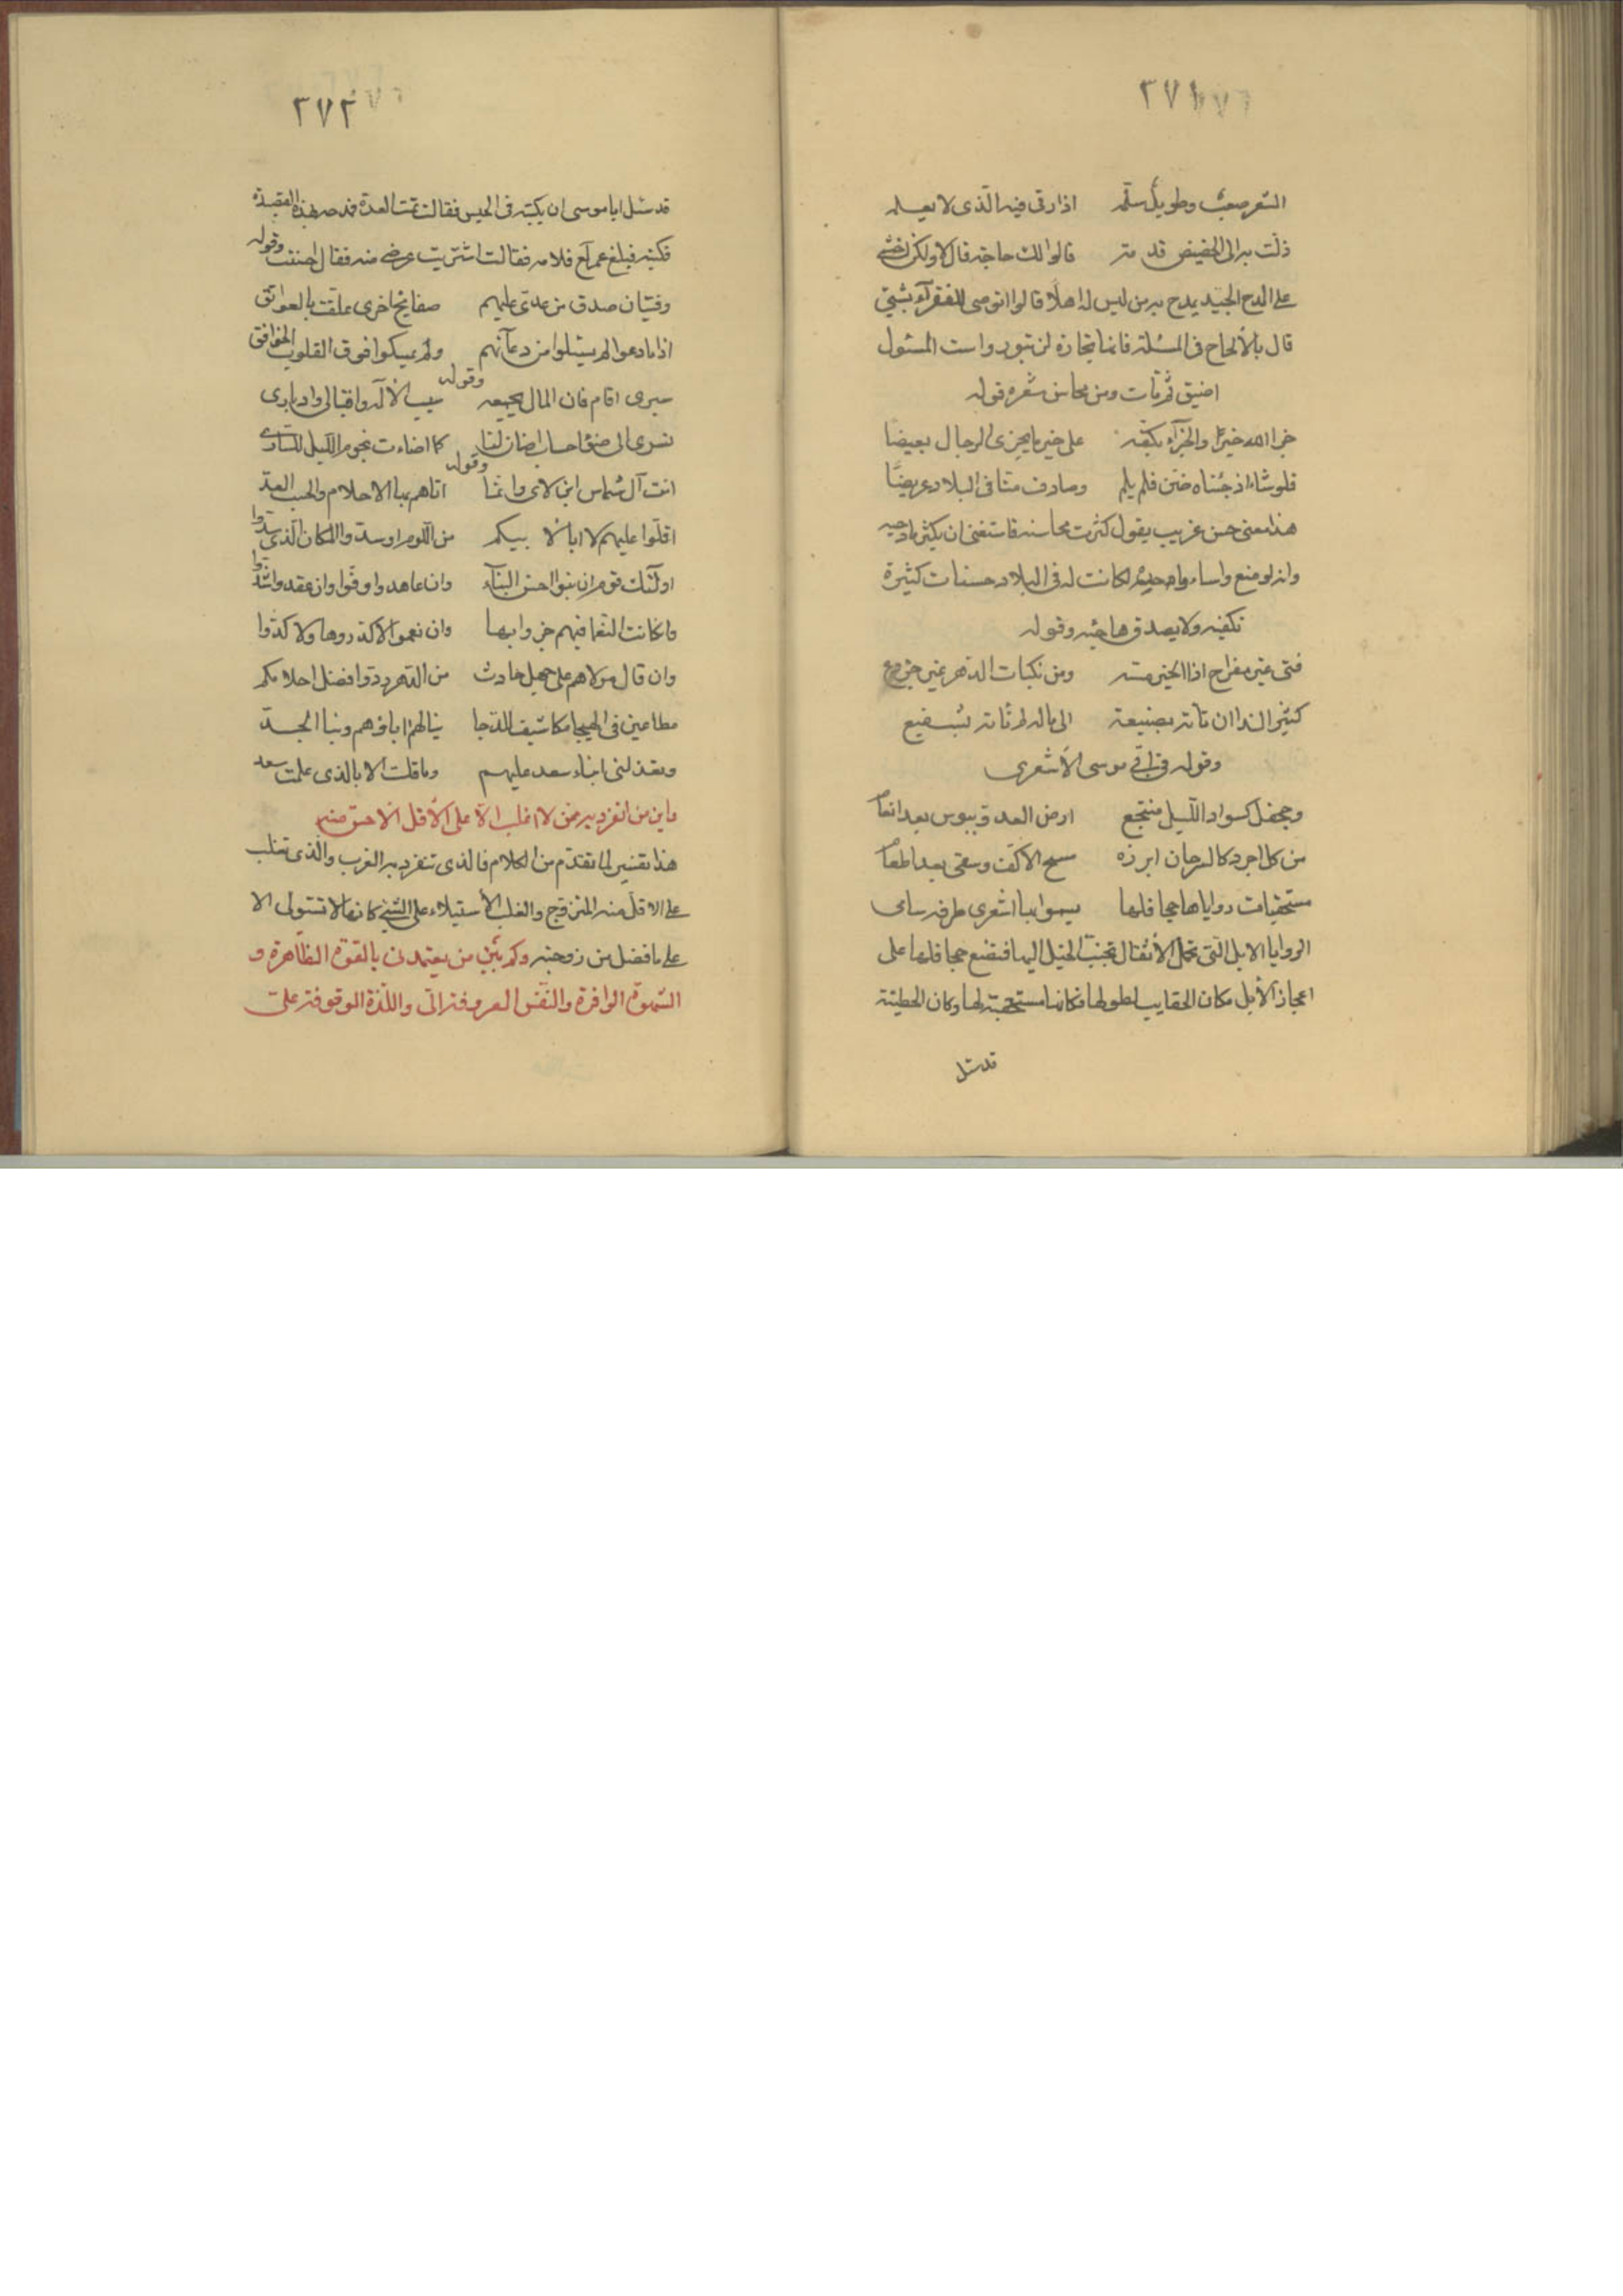 ٣٧١
الشعر صعب وطويل سلّمه اذا رقى فيه الّذى لا يعلمه
ذلّت به الى الحضيض قدمه قالوا لك حاجة قال لا ولكن اخشى
على المدح الجيّد يمدح به من ليس له اهلًا قالوا توصى للفقرآء بشئ
قال بالألحاح فى المسئلة فانها تجارة لن تبور واست المسئول
اضيق ثم مات ومن محاسن شعره قوله
جزا الله خيرًا والجزآء بكفّه على خير ما يجزى الرجال بغيضًا
فلو شاء اذ جئناه ضنّ فلم يلم وصادف منّا فى البلاد عريضًا
هذا معنى حسن غريب يقول كثرت محاسنه فاستغنى ان يكثر مادحيه
وانه لو منع واساء واحدة لكانت له فى البلاد حسنات كثيرة
تكفيه ولا يصدق هاجيه وقوله
فتى غير مفراح اذا الخير مسّه ومن نكبات الدّهر غير جزوع
كثير الندا ان تأته بصنيعة الى ماله لم تأته بشفيع
وقوله فى ابى موسى الأشعرى
وجحفل كسواد اللّيل منتجع ارض العدو ببوس بعد انعام
من كل اجرد كالسرحان ابرزه مسح الاكفّ وسقى بعد اطعام
مستحقبات رواياها جحافلها يسموا بها اشعرى طرفه سامى
الروايا الابل الّتى تحمل الأثقال تجنب الخيل اليها فتضع جحافلها على
اعجاز الأبل مكان الحقايب لطولها فكانها مستحقبة لها وكان الحطيئة
قد سئل
٣٧٢
قد سئل ابا موسى ان يكتبه فى الجيش فقال تمت العدة فمدحه بهذه القصيدة
فكتبه فبلغ عمر فلامه فقال اشتريت عرضى منه فقال احسنت وقوله
وفتيان صدق من عدىّ عليهم صفايح بصرى علّقت بالعواتق
اذا ما دعوا لم يسئلوا من دعاهم ولم يمسكوا فوق القلوب الخوافق
وقوله
سيرى امام فان المال يجمعه سيب الأله واقبالى وادبارى
نسرى الى ضوء احساب اضاءن لنا كما اضاءت نجوم اللّيل للسارى
وقوله
اتت آل شماس ابن لاى وانّما اتاهم بها الاحلام والحسب العدّ
اقلّوا عليهم لا ابا لا بيكم من اللّوم او سدّوا المكان الّذى سدّوا
اولئك قوم ان بنوا احسنوا البنآء وان عاهدوا اوفوا وان عقدوا شدّوا
وان كانت النعما فيهم جزوا بها وان نعموا لا كدّروها ولا كدّوا
وان قال مولاهم على جهل حادث من الدّهر ردّوا فضل احلامكم
مطاعين فى الهيجا مكاشيف للدّجا بنا لهم اباؤهم وبنا الجدّ
وتعذلنى ابناء سعد عليهم وما قلت الا بالذى علمت سعد
واين من انفرد به ممّن لا اغلب الّا على الأقل الاخسّ منه
هذا تفسير لما تقدّم من الكلام فالذى تنفرد به العرب والّذى تغلب
على الاقلّ منه المتزوّج والغلب الأستيلاء على الشئ كانها لا تستولى الا
على ما فضل من زوجته وكم بين من يعتمدنى بالقوّة الظّاهرة و
الشّهوة الوافرة والنّفس المصروفة الىّ واللّذة الموقوفة علىّ